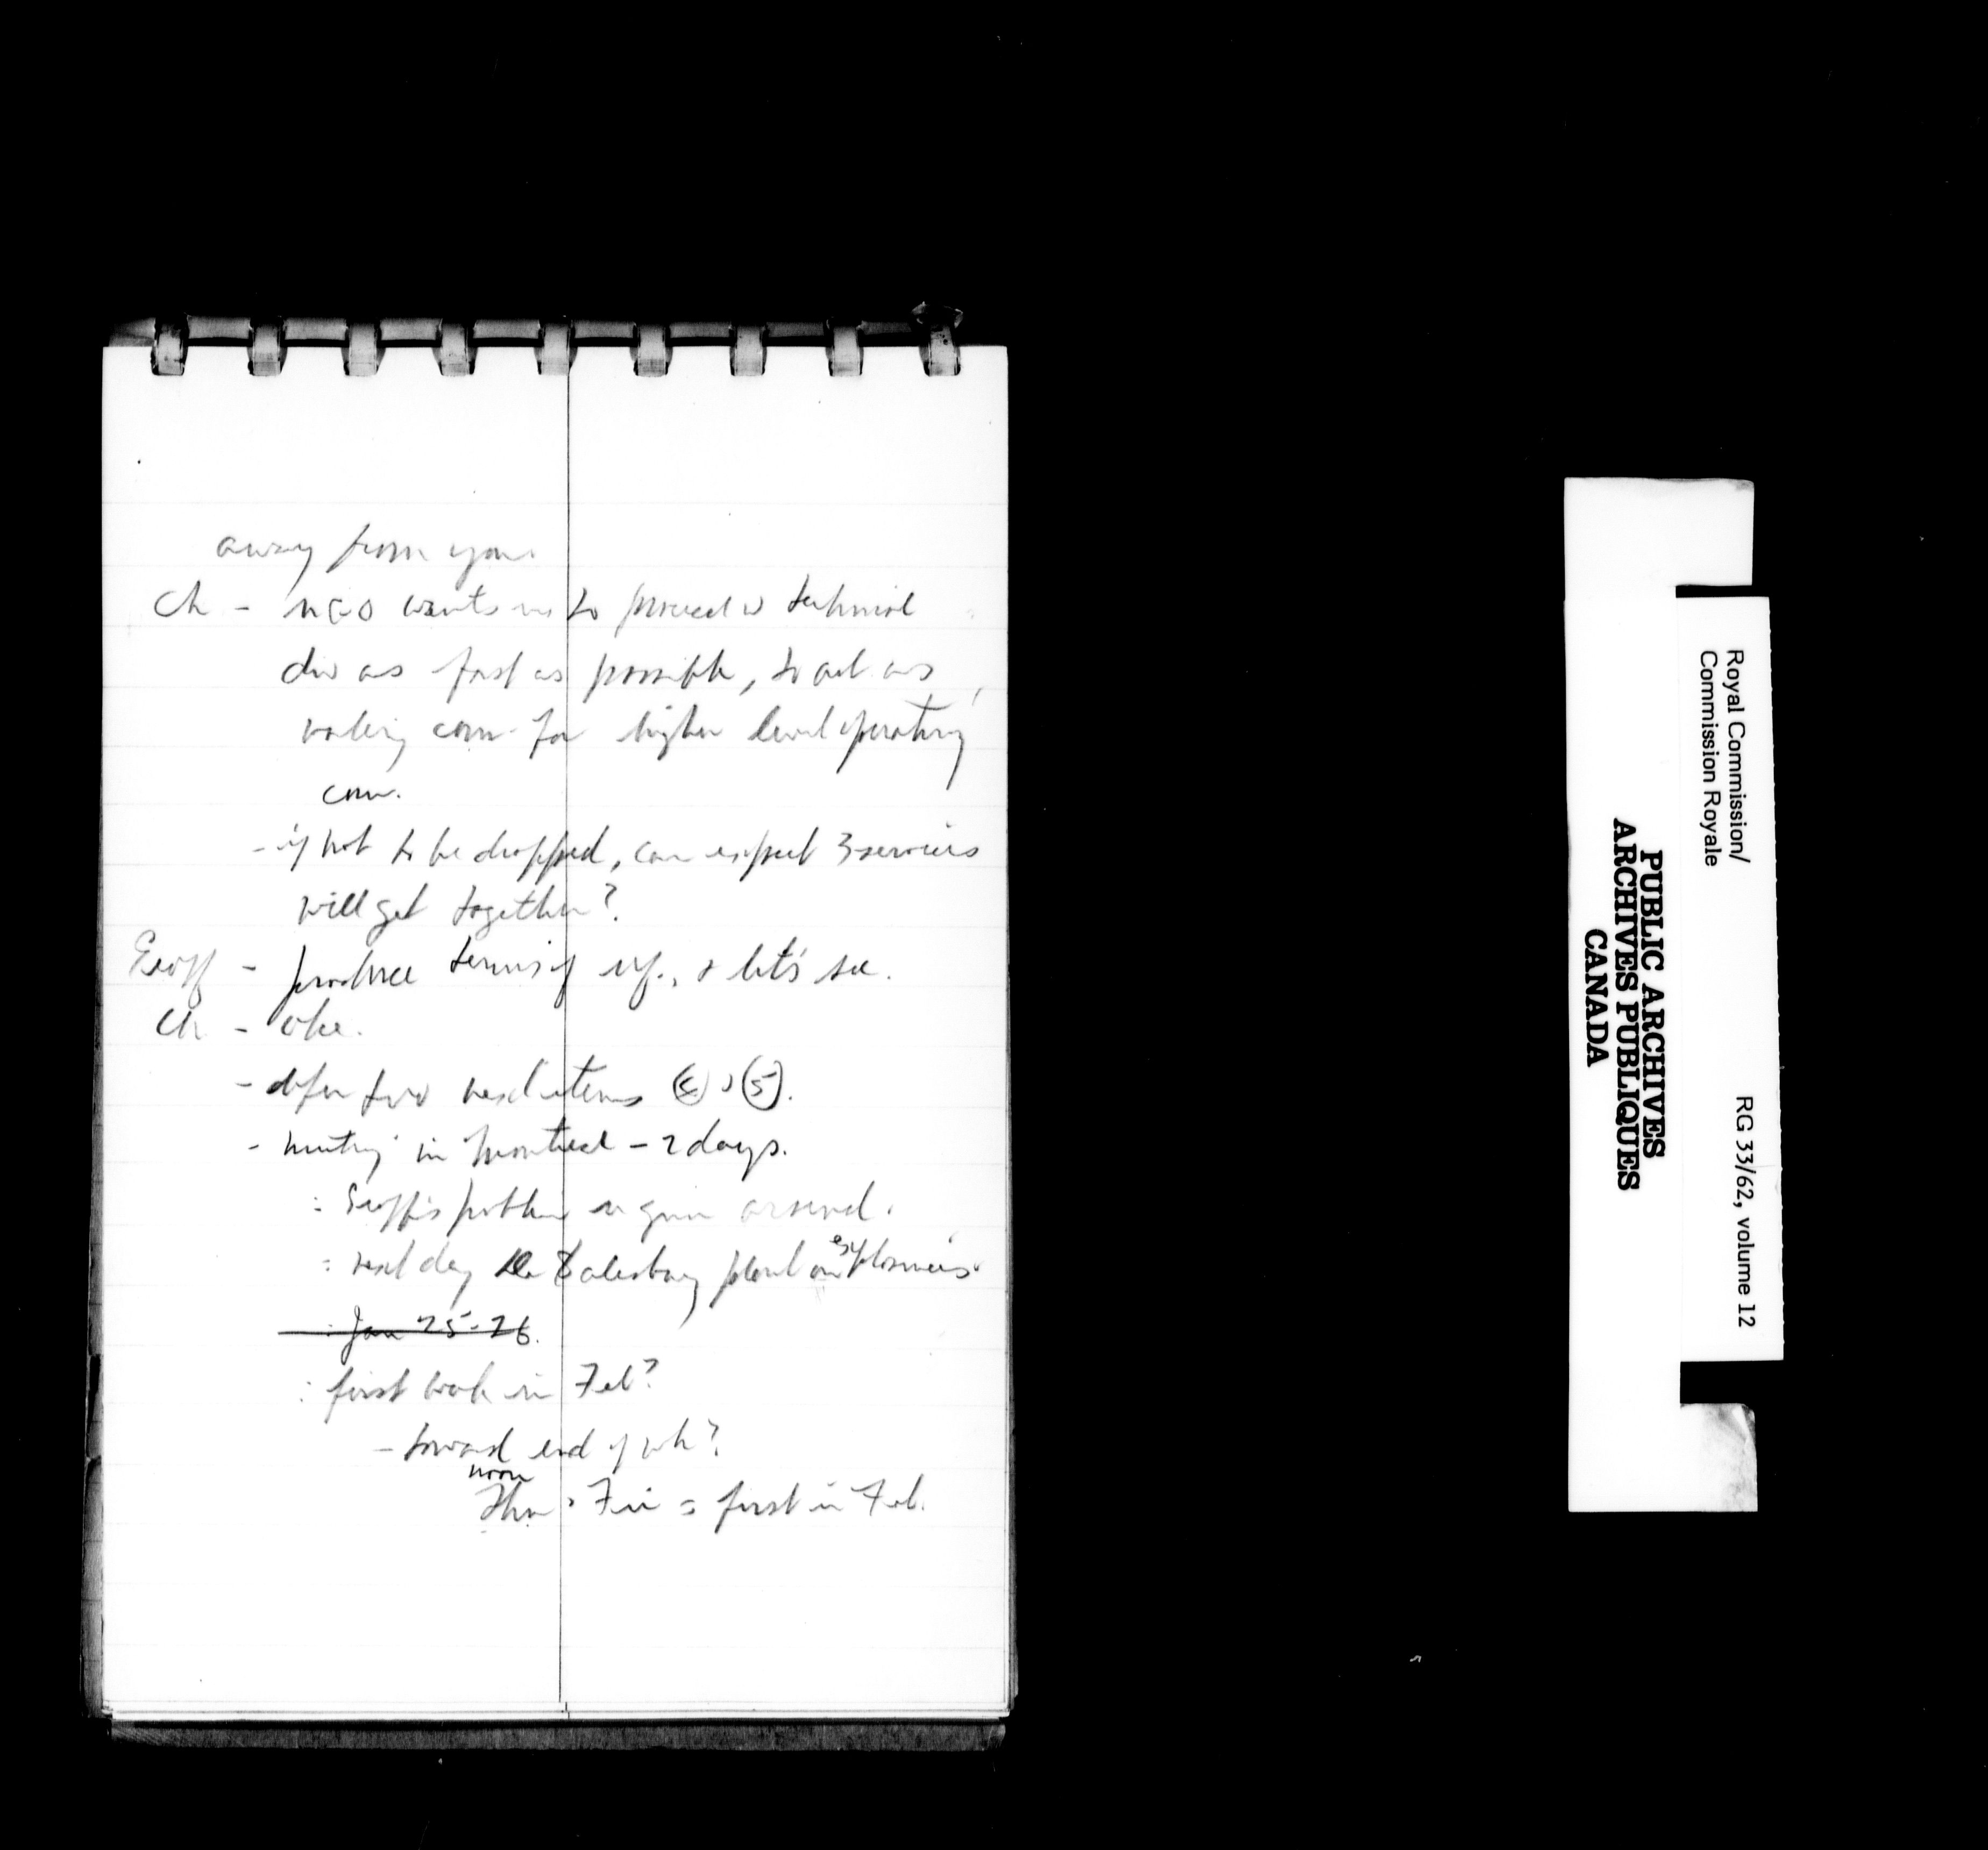 away from you.
Ch - NGO wants us to proceed w technical
div as fast as possible, to act as
working com. for higher level operating
com.
- if not to be dropped, can expect 3 services
will get together?
Geoff - produce terms of ref., & let's see.
Ch - oke.
- defer two next items (5).
- meeting in Montreal - 2 days.
: Geoff's problem in gun arsenal.
: next day plant on explosives.
: Jan 25-26.
: first week in Feb?
- toward end of wk?
noon
Thur & Fri = first in Feb.
Royal Commission/
Commission Royale
RG 33/62, volume 12
PUBLIC ARCHIVES
ARCHIVES PUBLIQUES
CANADA